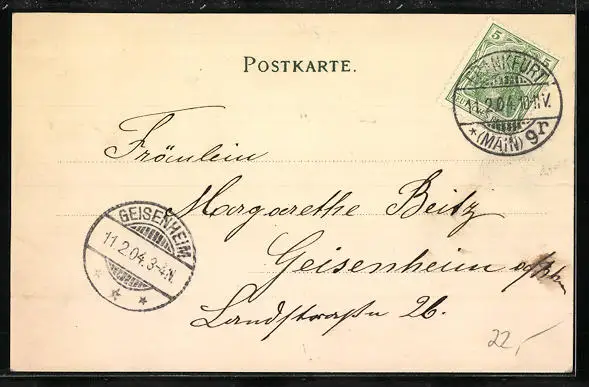 POSTKARTE.
5 5
FRANKFURT
2.04.10-11V.
* (MAIN) gr
Fräulein
Margarethe Beitz
GEISENHEIM
11.2.04.3-4N.
Geisenheim a/Rhn
Landstraße 26.
22,-